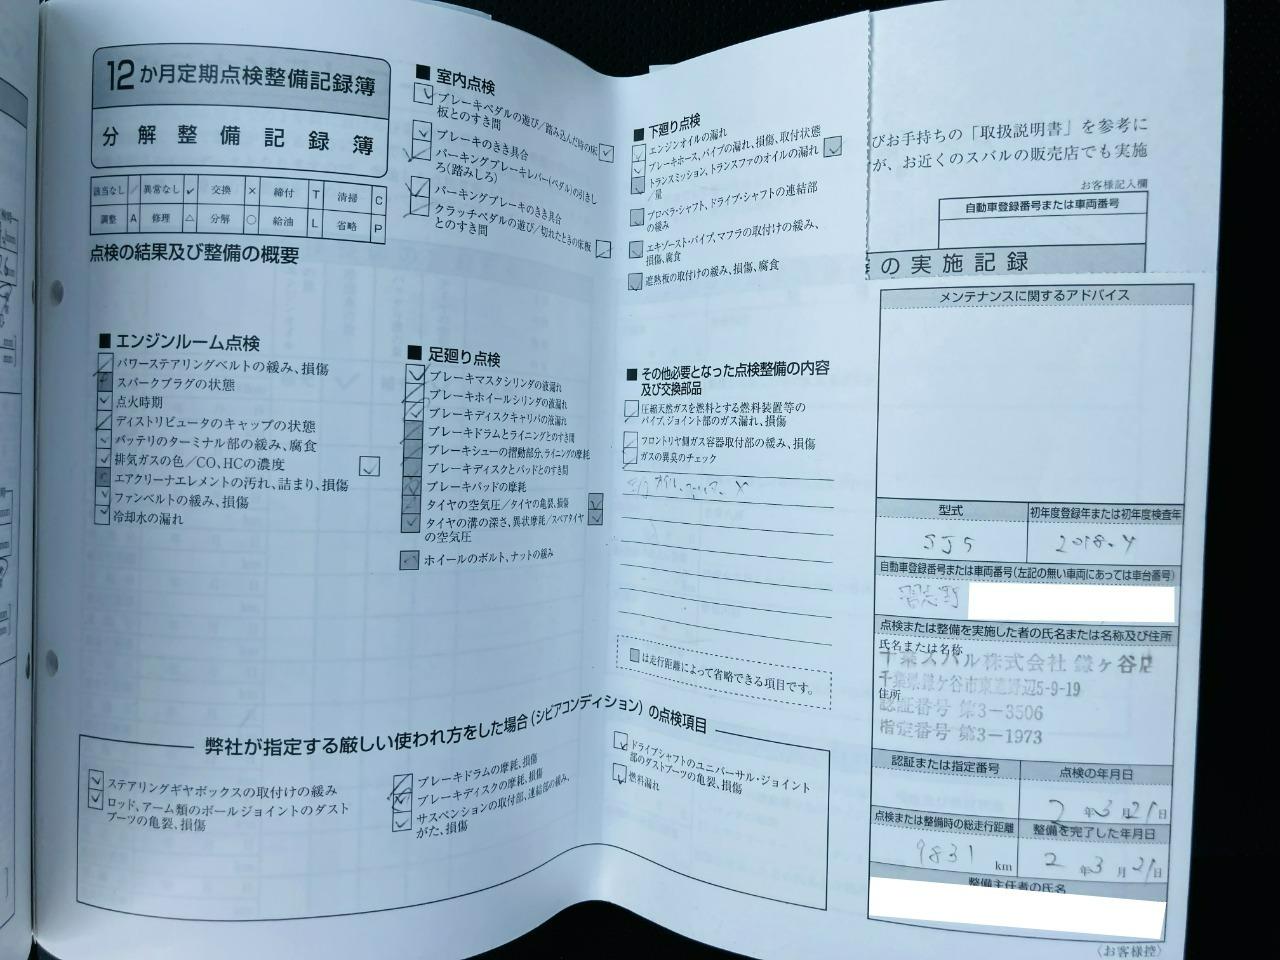 12か月定期点検整備記録簿
分解整備記録簿
該当なし / 異常なし ✓ 交換 × 締付 T 清掃 C
調整 A 修理 △ 分解 ○ 給油 L 省略 P
点検の結果及び整備の概要
■ エンジンルーム点検
パワーステアリングベルトの緩み、損傷
スパークプラグの状態
点火時期
ディストリビュータのキャップの状態
バッテリのターミナル部の緩み、腐食
排気ガスの色/CO、HCの濃度
エアクリーナエレメントの汚れ、詰まり、損傷
ファンベルトの緩み、損傷
冷却水の漏れ
■ 室内点検
ブレーキペダルの遊び/踏み込んだ時の床
板とのすき間
ブレーキのきき具合
パーキングブレーキレバー(ペダル)の引きし
ろ(踏みしろ)
パーキングブレーキのきき具合
クラッチペダルの遊び/切れたときの床板
とのすき間
■ 足廻り点検
ブレーキマスタシリンダの液漏れ
ブレーキホイールシリンダの液漏れ
ブレーキディスクキャリパの液漏れ
ブレーキドラムとライニングとのすき間
ブレーキシューの摺動部分、ライニングの摩耗
ブレーキディスクとパッドとのすき間
ブレーキパッドの摩耗
タイヤの空気圧/タイヤの亀裂、損傷
タイヤの溝の深さ、異状摩耗/スペアタイヤ
の空気圧
ホイールのボルト、ナットの緩み
■ 下廻り点検
エンジンオイルの漏れ
ブレーキホース、パイプの漏れ、損傷、取付状態
トランスミッション、トランスファのオイルの漏れ
/量
プロペラ・シャフト、ドライブ・シャフトの連結部
の緩み
エキゾースト・パイプ、マフラの取付けの緩み、
損傷、腐食
遮熱板の取付けの緩み、損傷、腐食
■ その他必要となった点検整備の内容
及び交換部品
圧縮天然ガスを燃料とする燃料装置等の
パイプ、ジョイント部のガス漏れ、損傷
フロントリヤ側ガス容器取付部の緩み、損傷
ガスの異臭のチェック
は走行距離によって省略できる項目です。
弊社が指定する厳しい使われ方をした場合(シビアコンディション)の点検項目
ステアリングギヤボックスの取付けの緩み
ロッド、アーム類のボールジョイントのダスト
ブーツの亀裂、損傷
ブレーキドラムの摩耗、損傷
ブレーキディスクの摩耗、損傷
サスペンションの取付部、連結部の緩み、
がた、損傷
ドライブシャフトのユニバーサル・ジョイント
部のダストブーツの亀裂、損傷
燃料漏れ
びお手持ちの「取扱説明書」を参考に
が、お近くのスバルの販売店でも実施
お客様記入欄
自動車登録番号または車両番号
の実施記録
メンテナンスに関するアドバイス
型式 初年度登録年または初年度検査年
SJ5 2018.4
自動車登録番号または車両番号(左記の無い車両にあっては車台番号)
習志野
点検または整備を実施した者の氏名または名称及び住所
氏名または名称
千葉スバル株式会社 鎌ヶ谷店
千葉県鎌ケ谷市東道野辺5-9-19
住所
認証番号 第3-3506
指定番号 第3-1973
認証または指定番号 点検の年月日
2年3月21日
点検または整備時の総走行距離 整備を完了した年月日
9831 km 2年3月21日
整備主任者の氏名
(お客様控)